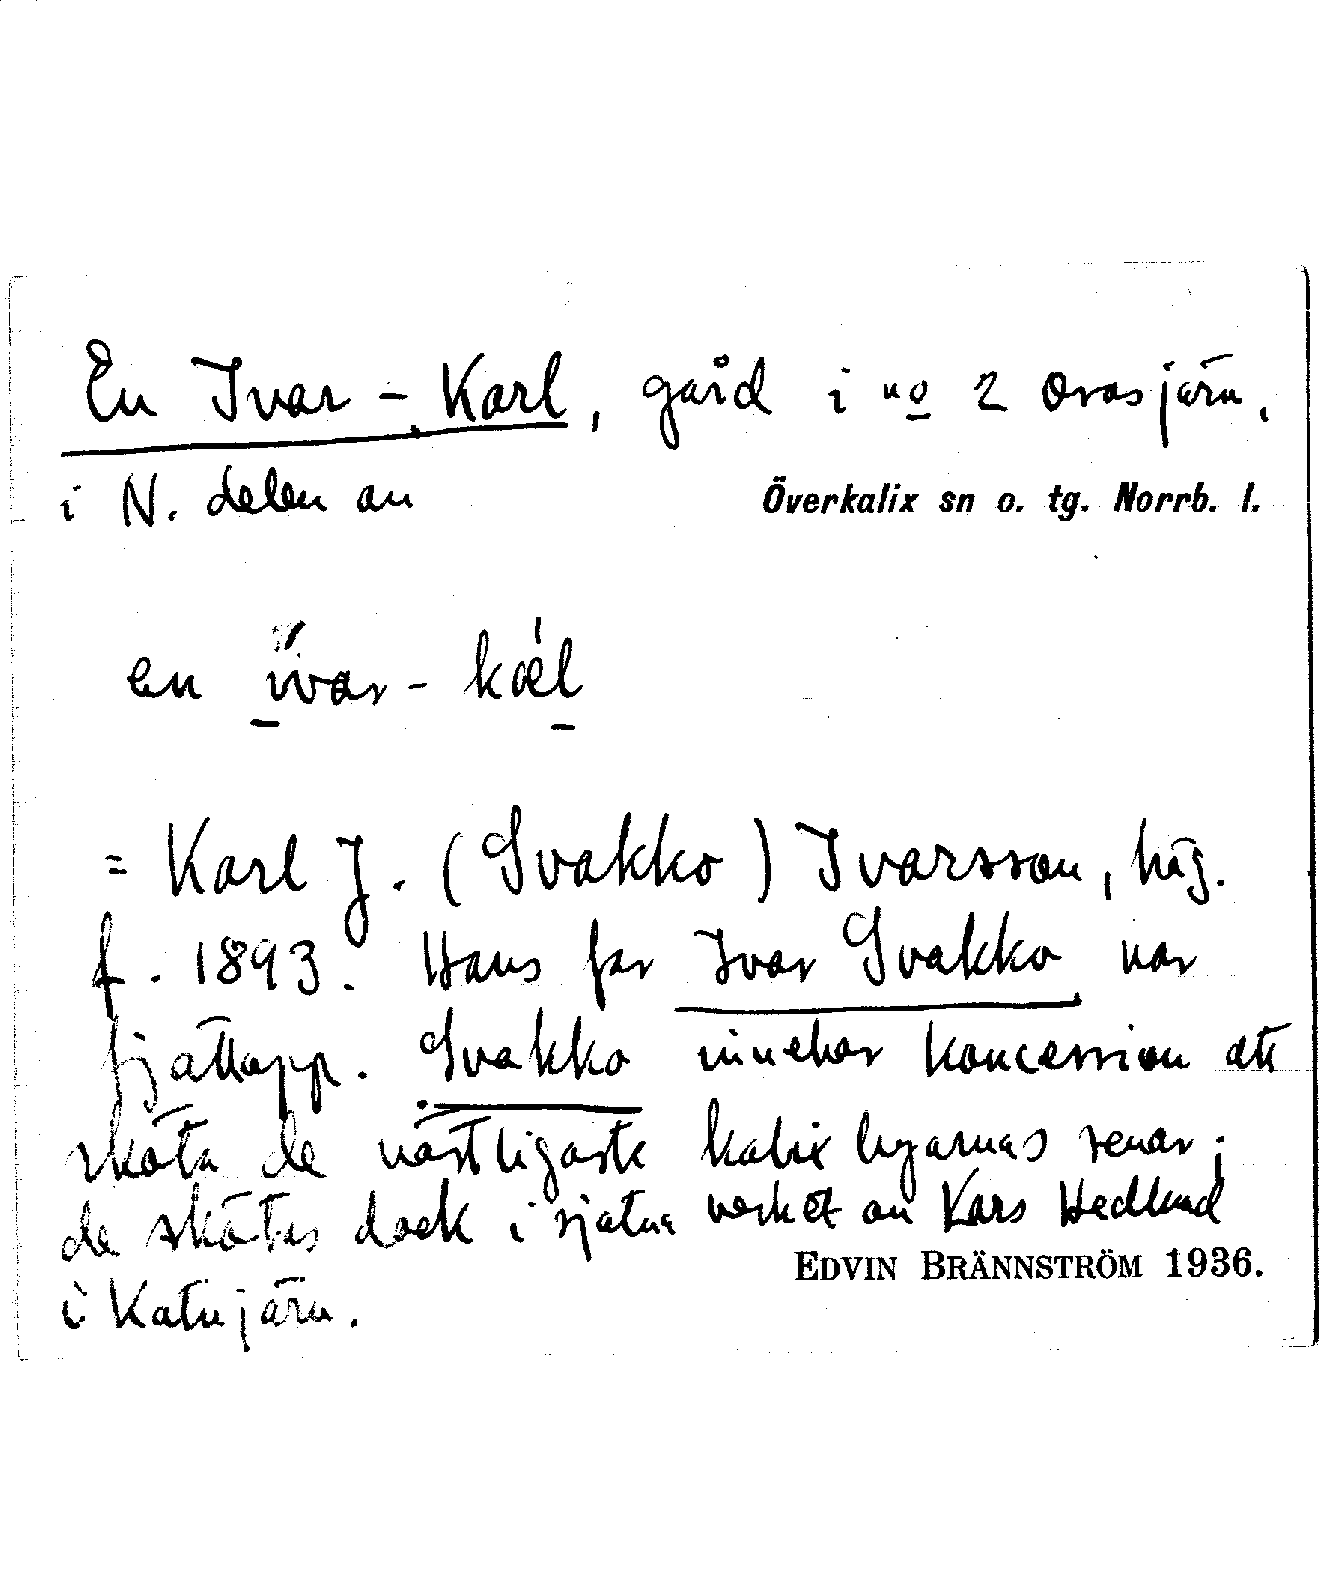 En Ivar-Karl, gård i no 2 Ovasjärv,
i N. delen av
Överkalix sn o. tg. Norrb. l.
en ivar-kæl
= Karl J. (Svakko) Ivarsson, häg.
f. 1893. Hans far Ivar Svakko var
fjällapp. Svakko innehar koncession att
sköta de västligaste kalixbyarnas renar;
de skötes dock i själva verket av Lars Hedlund
i Katujärv.
EDVIN BRÄNNSTRÖM 1936.